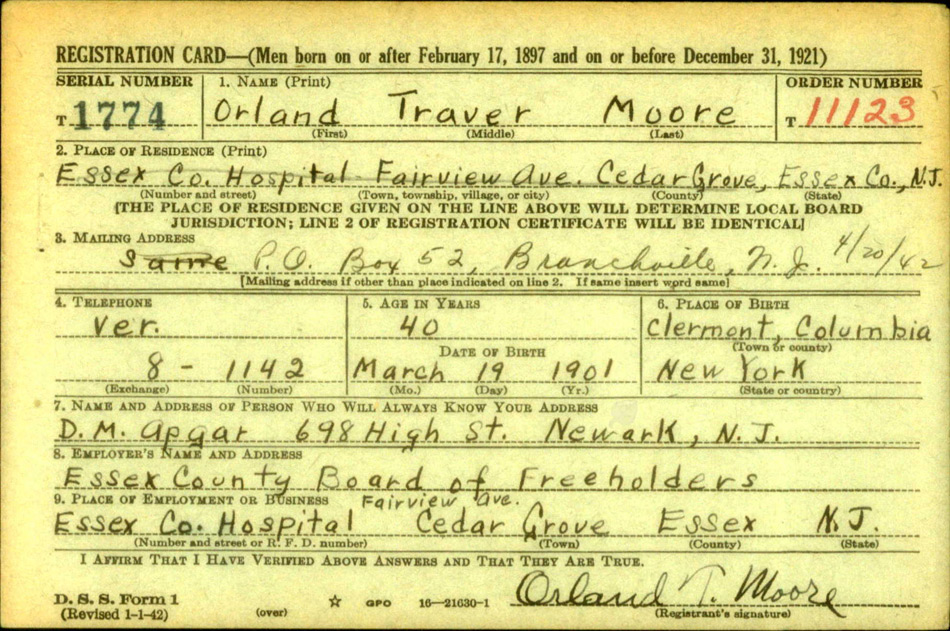 REGISTRATION CARD—(Men born on or after February 17, 1897 and on or before December 31, 1921)
SERIAL NUMBER 1. NAME (Print) ORDER NUMBER
T 1774 Orland Traver Moore T 11123
(First) (Middle) (Last)
2. PLACE OF RESIDENCE (Print)
Essex Co. Hospital - Fairview Ave. Cedar Grove, Essex Co., N.J.
(Number and street) (Town, township, village, or city) (County) (State)
[THE PLACE OF RESIDENCE GIVEN ON THE LINE ABOVE WILL DETERMINE LOCAL BOARD
JURISDICTION; LINE 2 OF REGISTRATION CERTIFICATE WILL BE IDENTICAL]
3. MAILING ADDRESS
Same P.O. Box 52, Branchville, N.J. 4/20/42
[Mailing address if other than place indicated on line 2. If same insert word same]
4. TELEPHONE 5. AGE IN YEARS 6. PLACE OF BIRTH
Ver. 40 Clermont, Columbia
DATE OF BIRTH (Town or county)
8 - 1142 March 19 1901 New York
(Exchange) (Number) (Mo.) (Day) (Yr.) (State or country)
7. NAME AND ADDRESS OF PERSON WHO WILL ALWAYS KNOW YOUR ADDRESS
D.M. Apgar 698 High St. Newark, N.J.
8. EMPLOYER'S NAME AND ADDRESS
Essex County Board of Freeholders
9. PLACE OF EMPLOYMENT OR BUSINESS Fairview Ave.
Essex Co. Hospital Cedar Grove Essex N.J.
(Number and street or R. F. D. number) (Town) (County) (State)
I AFFIRM THAT I HAVE VERIFIED ABOVE ANSWERS AND THAT THEY ARE TRUE.
D. S. S. Form 1 Orland T. Moore
(Revised 1-1-42) (over) ☆ GPO 16—21630-1 (Registrant's signature)